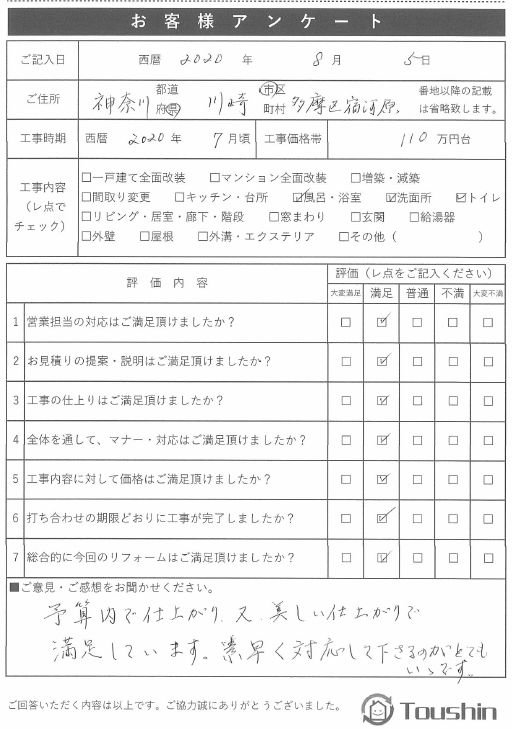 お客様アンケート
ご記入日 西暦 2020 年 8 月 5 日
ご住所 神奈川 都道府県 川崎 市区町村 多摩区宿河原、 番地以降の記載は省略致します。
工事時期 西暦 2020 年 7 月頃 工事価格帯 110 万円台
工事内容（レ点でチェック）
□一戸建て全面改装 □マンション全面改装 □増築・減築
□間取り変更 □キッチン・台所 ☑風呂・浴室 ☑洗面所 ☑トイレ
□リビング・居室・廊下・階段 □窓まわり □玄関 □給湯器
□外壁 □屋根 □外溝・エクステリア □その他（ ）
評価内容 評価（レ点をご記入ください）
大変満足 満足 普通 不満 大変不満
1 営業担当の対応はご満足頂けましたか？ □ ☑ □ □ □
2 お見積りの提案・説明はご満足頂けましたか？ □ ☑ □ □ □
3 工事の仕上りはご満足頂けましたか？ □ ☑ □ □ □
4 全体を通して、マナー・対応はご満足頂けましたか？ □ ☑ □ □ □
5 工事内容に対して価格はご満足頂けましたか？ □ ☑ □ □ □
6 打ち合わせの期限どおりに工事が完了しましたか？ □ ☑ □ □ □
7 総合的に今回のリフォームはご満足頂けましたか？ □ ☑ □ □ □
■ご意見・ご感想をお聞かせください。
予算内で仕上がり、又、美しい仕上がりで
満足しています。素早く対応して下さるのがとても
いいです。
ご回答いただく内容は以上です。ご協力誠にありがとうございました。
Toushin